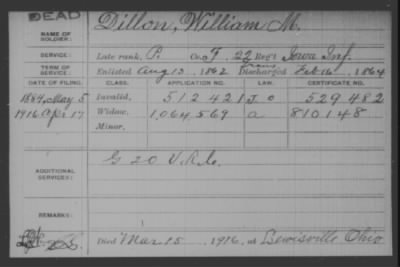 DEAD
NAME OF SOLDIER: Dillon, William M.
SERVICE: Late rank, P. Co. F, 22 Reg't Iowa Inf.
TERM OF SERVICE: Enlisted Aug 13, 1862 Discharged Feb 16, 1864
DATE OF FILING. CLASS. APPLICATION NO. LAW. CERTIFICATE NO.
1884, May 5 Invalid, 512 421 J. O 529 482
1916 Apr 17 Widow, 1,064,569 a 810148
Minor,
ADDITIONAL SERVICES: G 20 V.R.C.
REMARKS:
Died Mar 15, 1916, at Lewisville Ohio